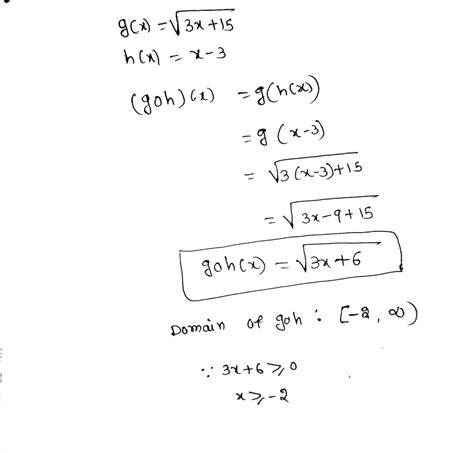 g(x) = √3x+15
h(x) = x-3
(goh)(x) = g(h(x))
= g(x-3)
= √3(x-3)+15
= √3x-9+15
goh(x) = √3x+6
Domain of goh : [-2, ∞)
∵ 3x+6 ⩾ 0
x ⩾ -2